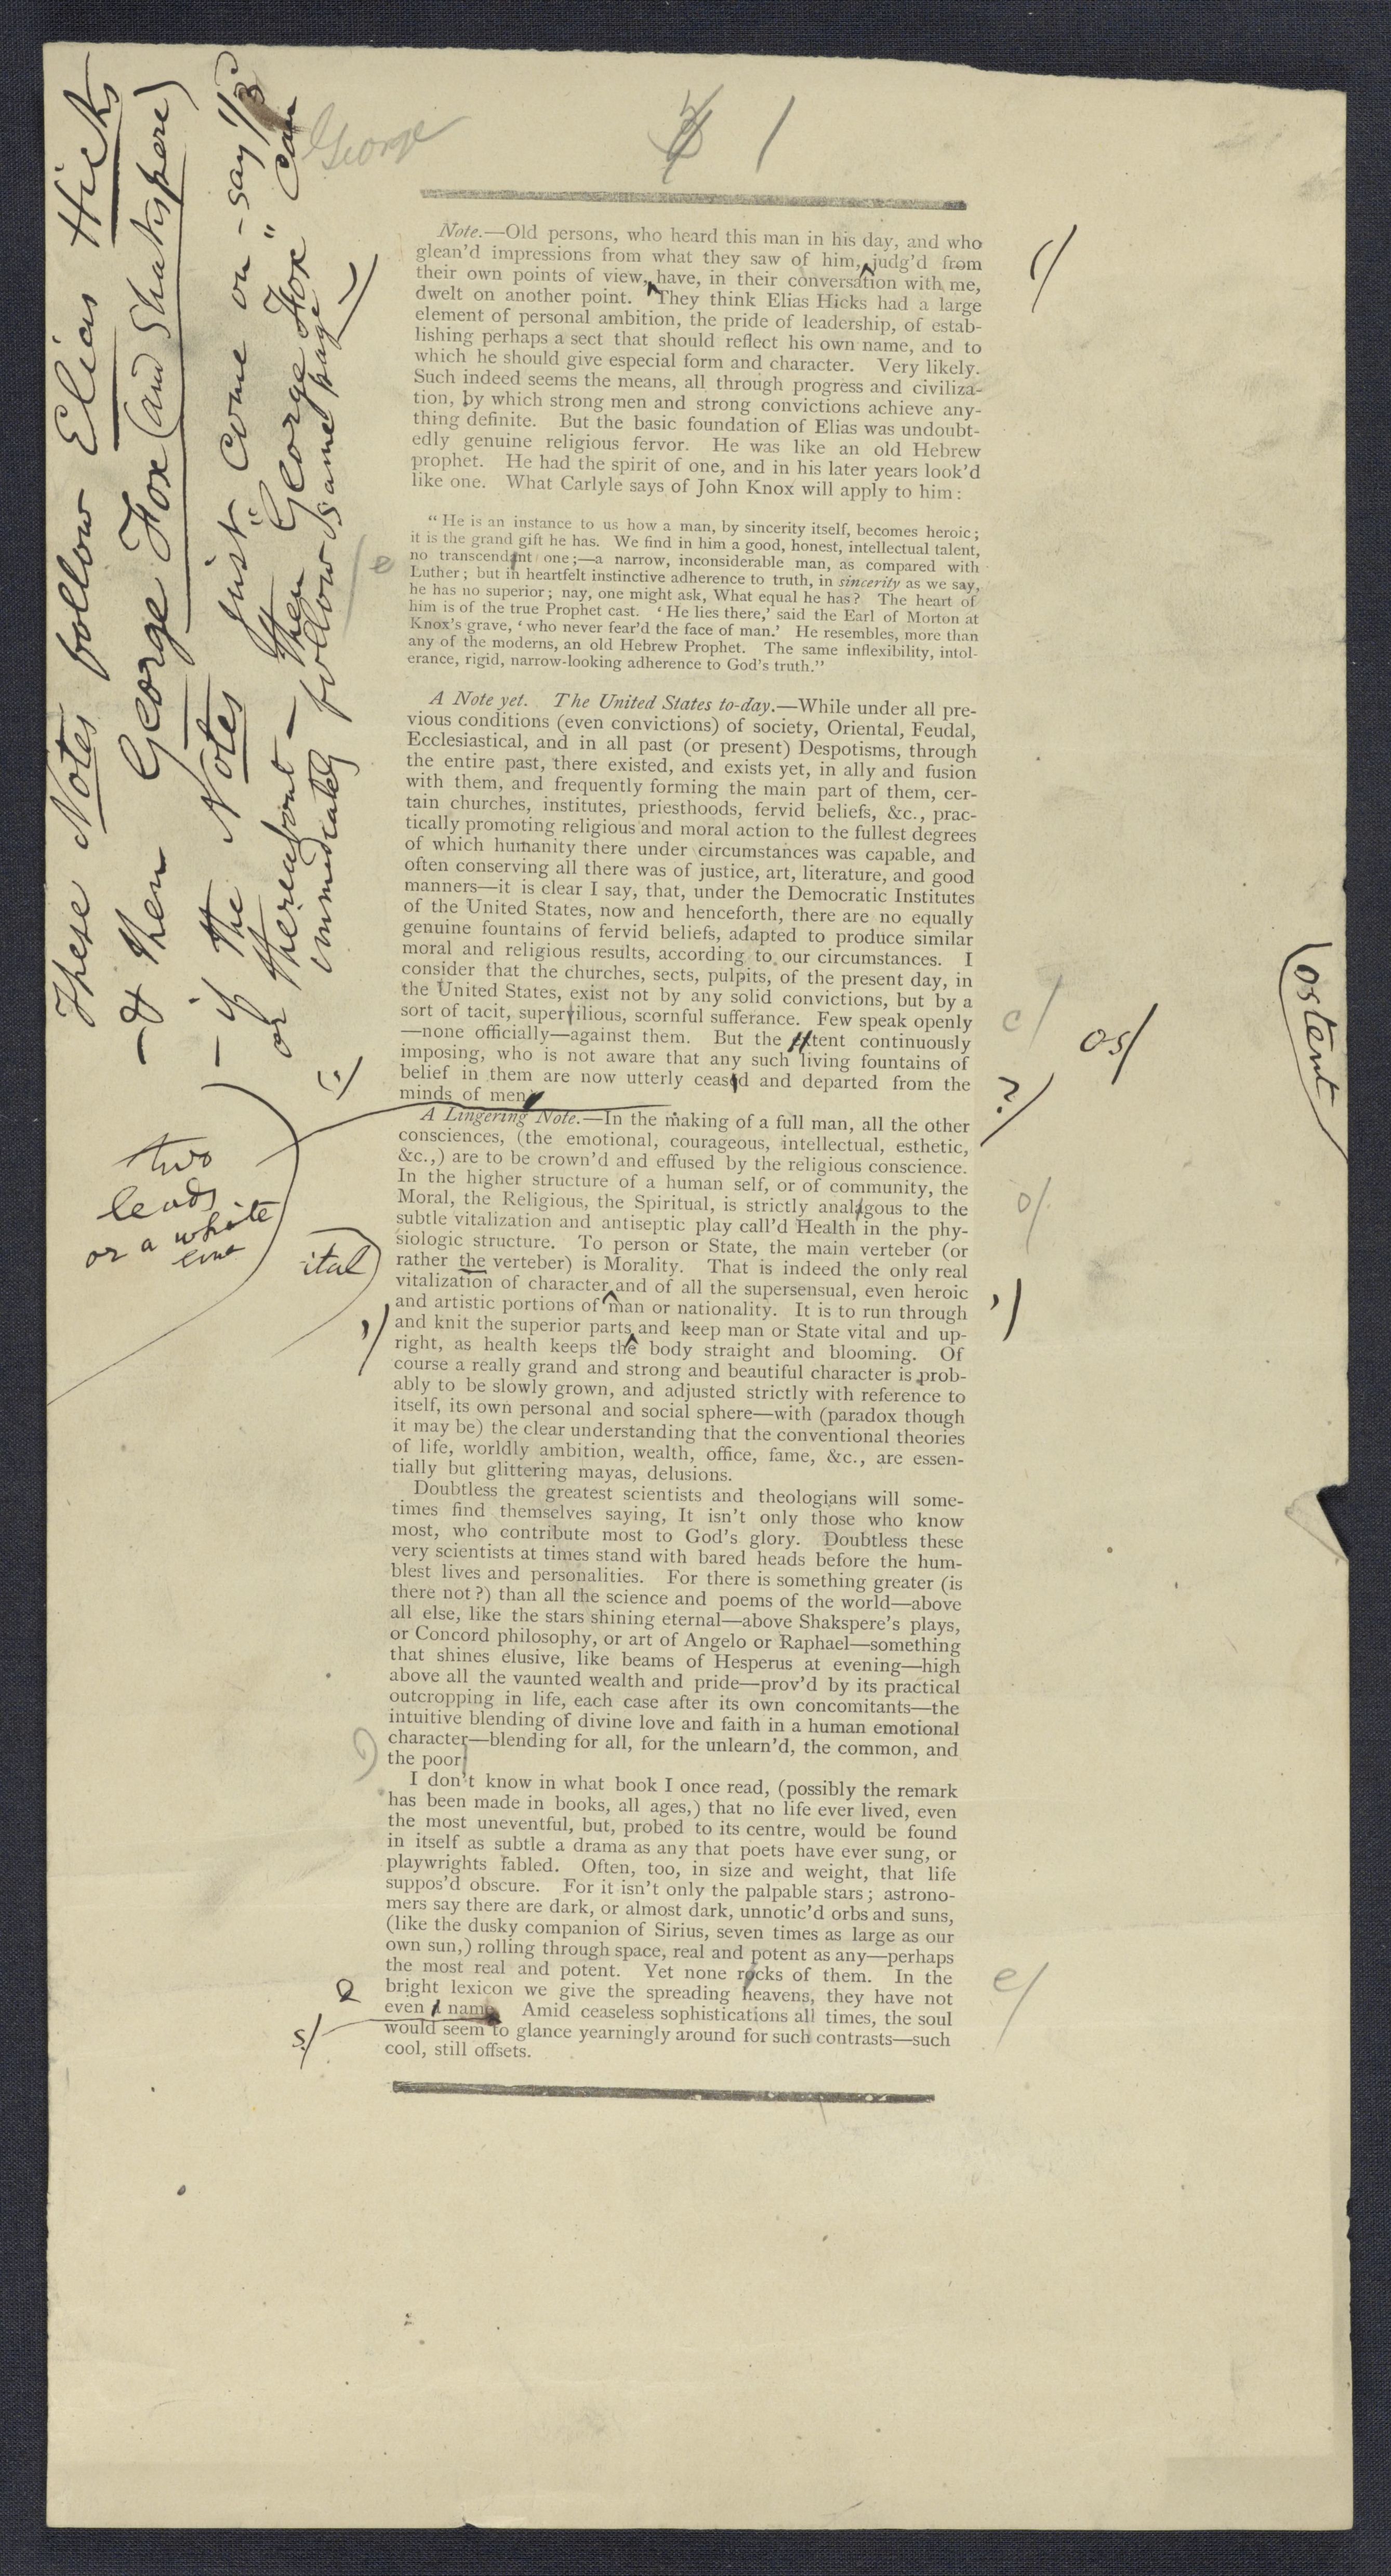 These Notes follow Elias Hicks
- & then George Fox (and Shakspere)
- if the Notes just come on - say 1/3
or thereabout - then "George Fox" can
immediately follow same page
George
1
Note.—Old persons, who heard this man in his day, and who
glean'd impressions from what they saw of him, judg'd from
their own points of view, have, in their conversation with me,
dwelt on another point. They think Elias Hicks had a large
element of personal ambition, the pride of leadership, of estab-
lishing perhaps a sect that should reflect his own name, and to
which he should give especial form and character. Very likely.
Such indeed seems the means, all through progress and civiliza-
tion, by which strong men and strong convictions achieve any-
thing definite. But the basic foundation of Elias was undoubt-
edly genuine religious fervor. He was like an old Hebrew
prophet. He had the spirit of one, and in his later years look'd
like one. What Carlyle says of John Knox will apply to him:
(/
"He is an instance to us how a man, by sincerity itself, becomes heroic;
it is the grand gift he has. We find in him a good, honest, intellectual talent,
no transcendant one;—a narrow, inconsiderable man, as compared with
Luther; but in heartfelt instinctive adherence to truth, in sincerity as we say,
he has no superior; nay, one might ask, What equal he has? The heart of
him is of the true Prophet cast. 'He lies there,' said the Earl of Morton at
Knox's grave, 'who never fear'd the face of man.' He resembles, more than
any of the moderns, an old Hebrew Prophet. The same inflexibility, intol-
erance, rigid, narrow-looking adherence to God's truth."
/e
A Note yet. The United States to-day.—While under all pre-
vious conditions (even convictions) of society, Oriental, Feudal,
Ecclesiastical, and in all past (or present) Despotisms, through
the entire past, there existed, and exists yet, in ally and fusion
with them, and frequently forming the main part of them, cer-
tain churches, institutes, priesthoods, fervid beliefs, &c., prac-
tically promoting religious and moral action to the fullest degrees
of which humanity there under circumstances was capable, and
often conserving all there was of justice, art, literature, and good
manners—it is clear I say, that, under the Democratic Institutes
of the United States, now and henceforth, there are no equally
genuine fountains of fervid beliefs, adapted to produce similar
moral and religious results, according to our circumstances. I
consider that the churches, sects, pulpits, of the present day, in
the United States, exist not by any solid convictions, but by a
sort of tacit, supervilious, scornful sufferance. Few speak openly
—none officially—against them. But the extent continuously
imposing, who is not aware that any such living fountains of
belief in them are now utterly ceased and departed from the
minds of men
c/
os/
(ostent
?)
A Lingering Note.—In the making of a full man, all the other
consciences, (the emotional, courageous, intellectual, esthetic,
&c.,) are to be crown'd and effused by the religious conscience.
In the higher structure of a human self, or of community, the
Moral, the Religious, the Spiritual, is strictly analagous to the
subtle vitalization and antiseptic play call'd Health in the phy-
siologic structure. To person or State, the main verteber (or
rather the verteber) is Morality. That is indeed the only real
vitalization of character and of all the supersensual, even heroic
and artistic portions of man or nationality. It is to run through
and knit the superior parts and keep man or State vital and up-
right, as health keeps the body straight and blooming. Of
course a really grand and strong and beautiful character is prob-
ably to be slowly grown, and adjusted strictly with reference to
itself, its own personal and social sphere—with (paradox though
it may be) the clear understanding that the conventional theories
of life, worldly ambition, wealth, office, fame, &c., are essen-
tially but glittering mayas, delusions.
two
leads
or a white
line
ital)
o/
,/
,/
Doubtless the greatest scientists and theologians will some-
times find themselves saying, It isn't only those who know
most, who contribute most to God's glory. Doubtless these
very scientists at times stand with bared heads before the hum-
blest lives and personalities. For there is something greater (is
there not?) than all the science and poems of the world—above
all else, like the stars shining eternal—above Shakspere's plays,
or Concord philosophy, or art of Angelo or Raphael—something
that shines elusive, like beams of Hesperus at evening—high
above all the vaunted wealth and pride—prov'd by its practical
outcropping in life, each case after its own concomitants—the
intuitive blending of divine love and faith in a human emotional
character—blending for all, for the unlearn'd, the common, and
the poor
I don't know in what book I once read, (possibly the remark
has been made in books, all ages,) that no life ever lived, even
the most uneventful, but, probed to its centre, would be found
in itself as subtle a drama as any that poets have ever sung, or
playwrights fabled. Often, too, in size and weight, that life
suppos'd obscure. For it isn't only the palpable stars; astrono-
mers say there are dark, or almost dark, unnotic'd orbs and suns,
(like the dusky companion of Sirius, seven times as large as our
own sun,) rolling through space, real and potent as any—perhaps
the most real and potent. Yet none rocks of them. In the
bright lexicon we give the spreading heavens, they have not
even a name Amid ceaseless sophistications all times, the soul
would seem to glance yearningly around for such contrasts—such
cool, still offsets.
e/
s/